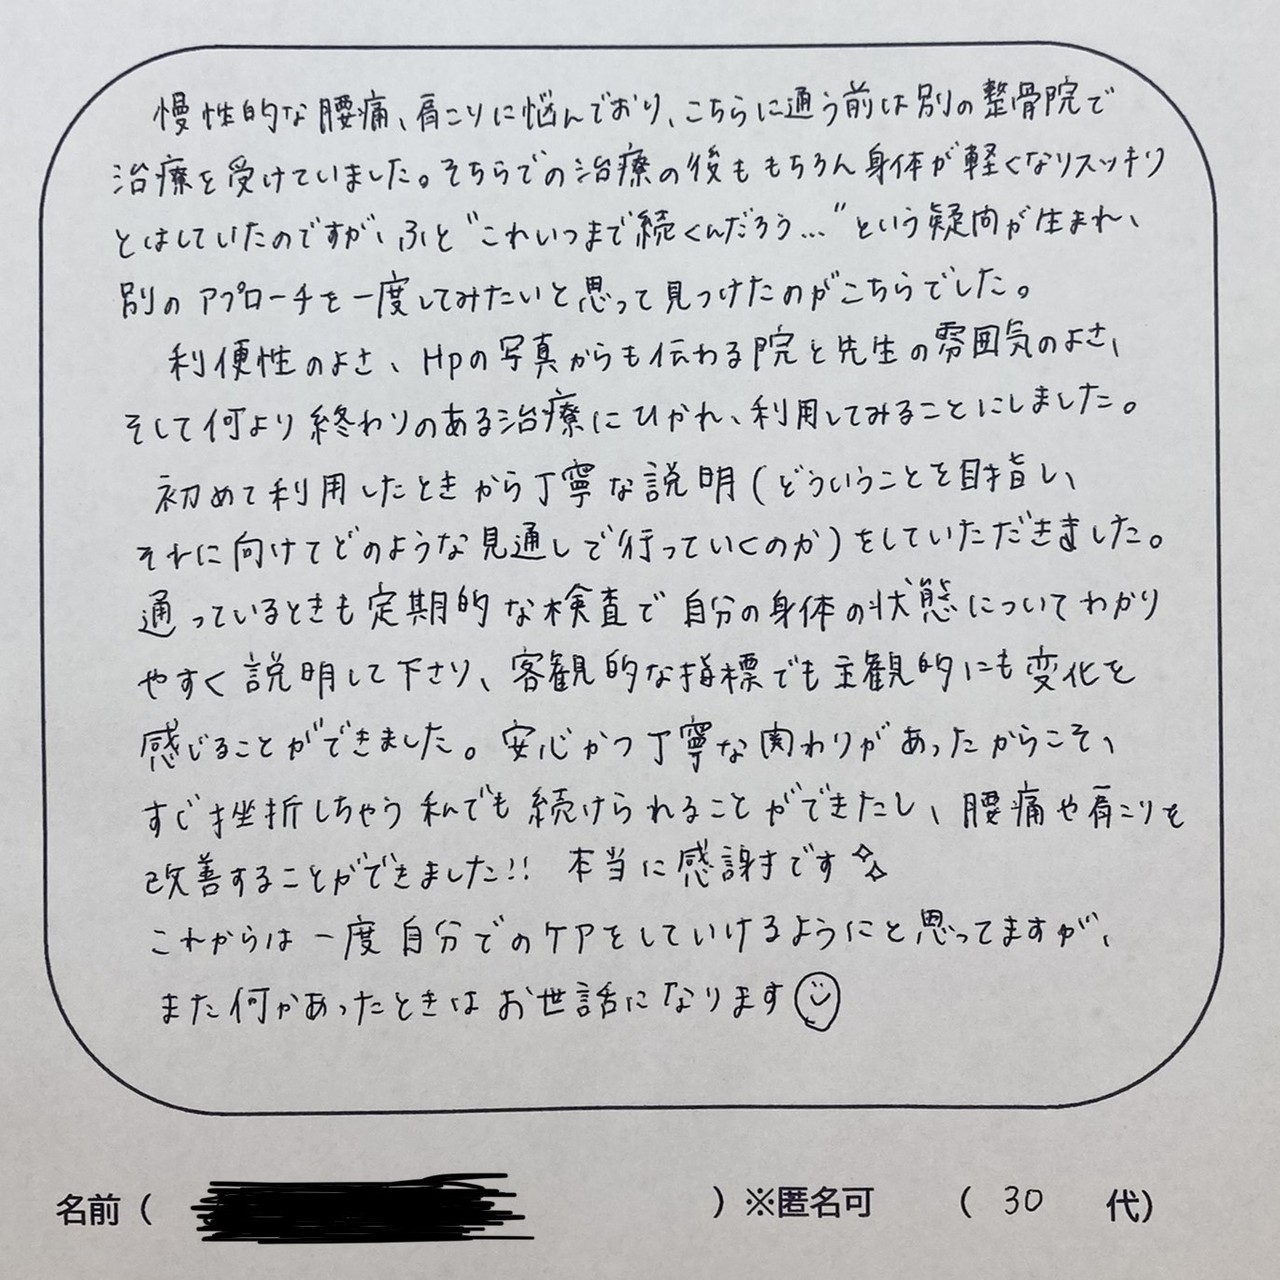 慢性的な腰痛、肩こりに悩んでおり、こちらに通う前は別の整骨院で
治療を受けていました。そちらでの治療の後ももちろん身体が軽くなりスッキリ
とはしていたのですが、ふと"これいつまで続くんだろう..."という疑問が生まれ、
別のアプローチを一度してみたいと思って見つけたのがこちらでした。
利便性のよさ、Hpの写真からも伝わる院と先生の雰囲気のよさ、
そして何より終わりのある治療にひかれ、利用してみることにしました。
初めて利用したときから丁寧な説明(どういうことを目指し、
それに向けてどのような見通しで行っていくのか)をしていただきました。
通っているときも定期的な検査で自分の身体の状態についてわかり
やすく説明して下さり、客観的な指標でも主観的にも変化を
感じることができました。安心かつ丁寧な関わりがあったからこそ、
すぐ挫折しちゃう私でも続けられることができたし、腰痛や肩こりを
改善することができました!! 本当に感謝です✧
これからは一度自分でのケアをしていけるようにと思ってますが、
また何かあったときはお世話になります☺
名前( )※匿名可 (30代)